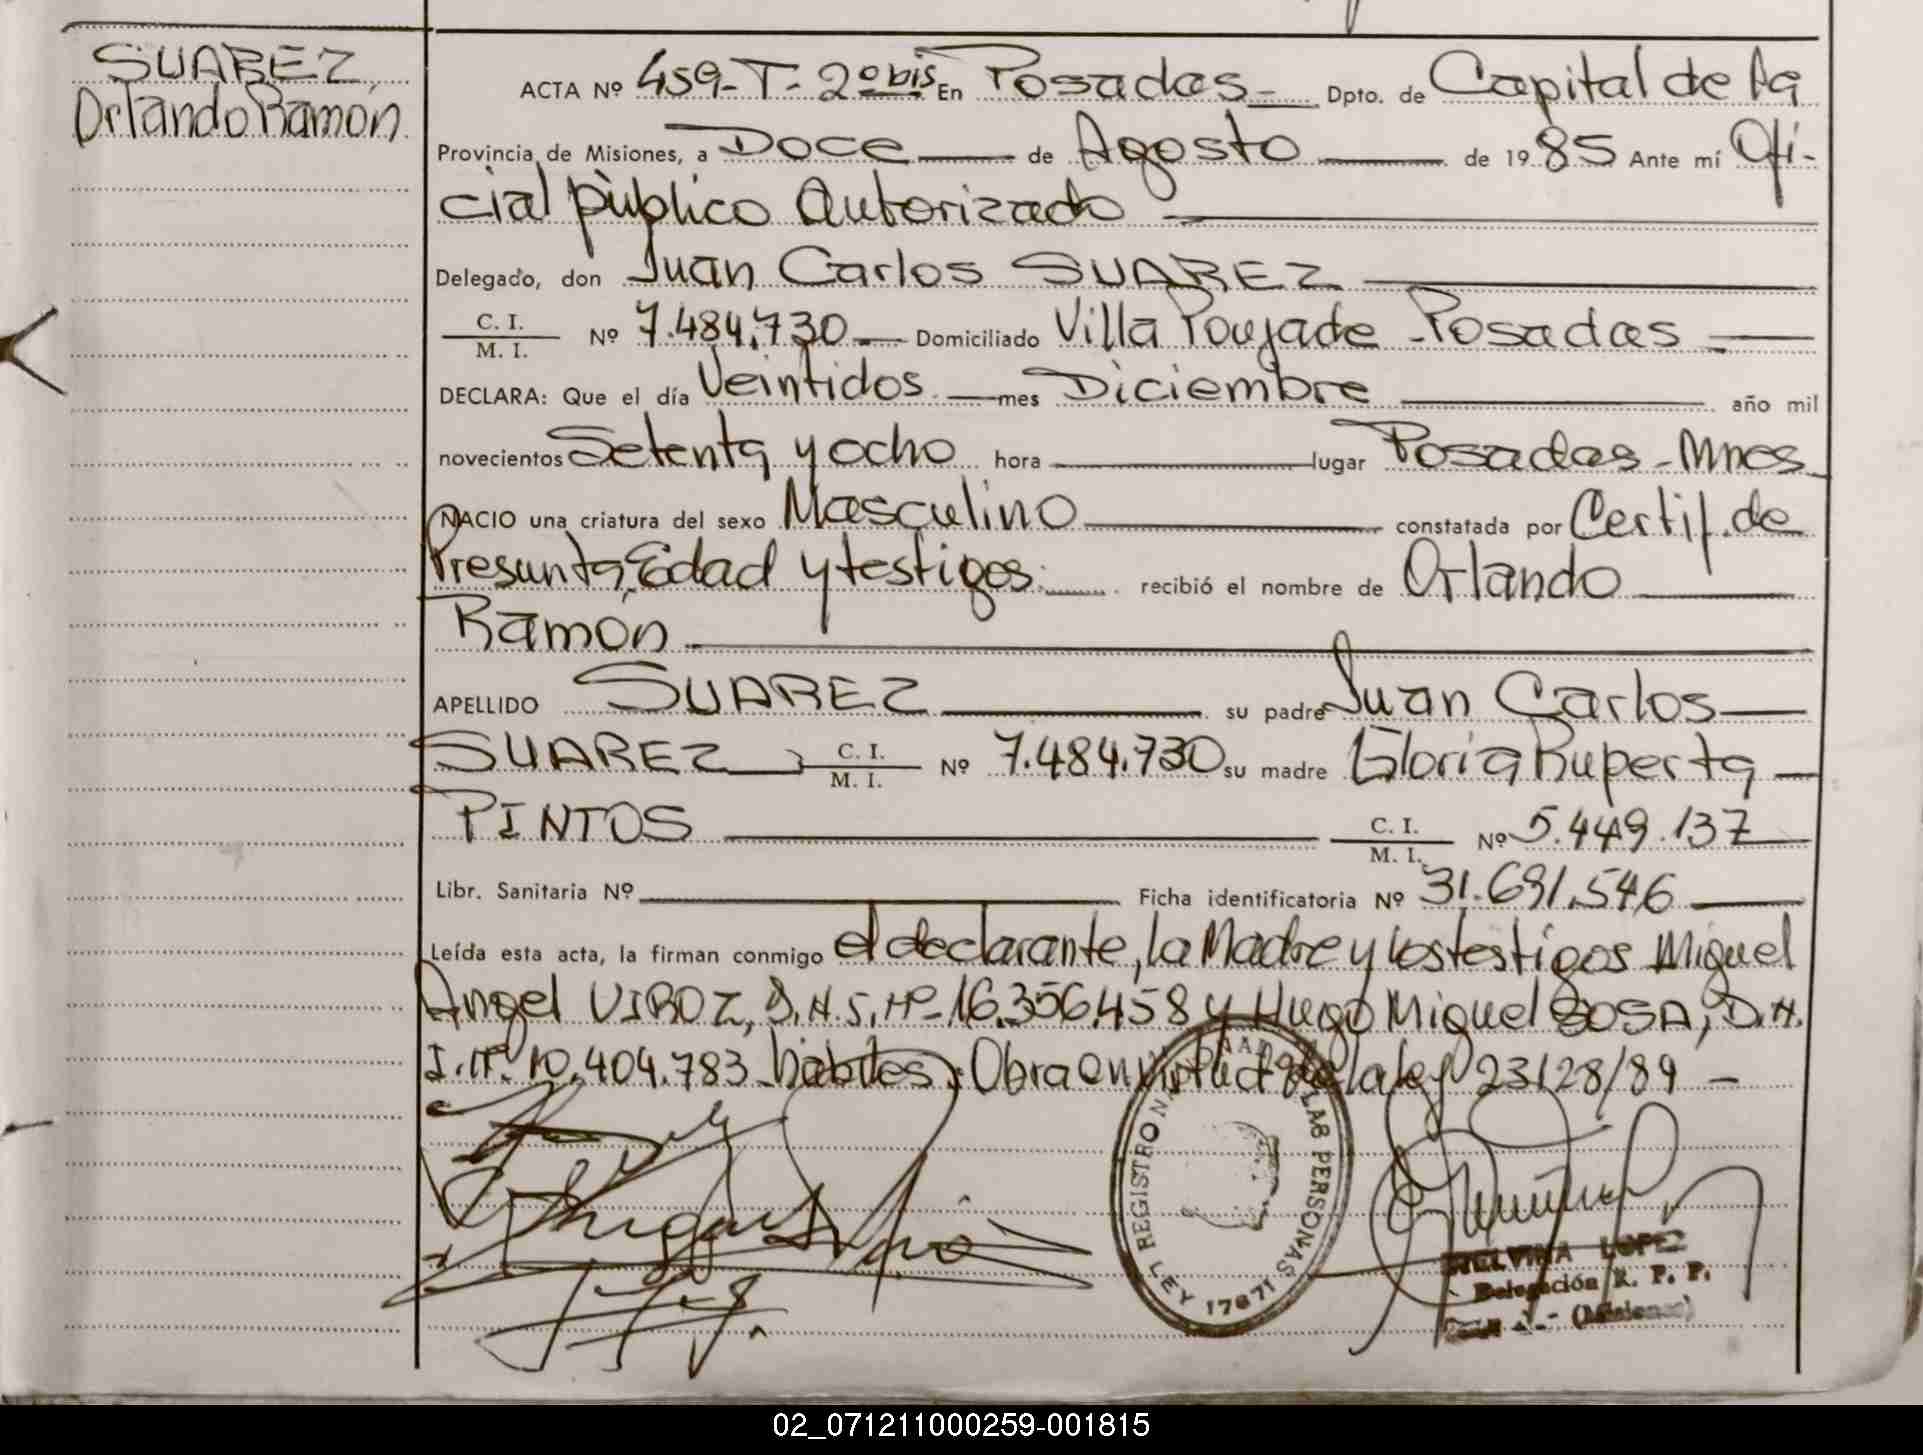 SUAREZ
Orlando Ramón
ACTA Nº 459-T-2º bis En Posadas Dpto. de Capital de la
Provincia de Misiones, a Doce de Agosto de 1985 Ante mí Ofi-
cial público Autorizado
Delegado, don Juan Carlos SUAREZ
C. I.
M. I. Nº 7.484.730 Domiciliado Villa Poujade - Posadas
DECLARA: Que el día Veintidos mes Diciembre año mil
novecientos Setenta y ocho hora lugar Posadas - Mnes
NACIO una criatura del sexo Masculino constatada por Certif. de
Presunta Edad y testigos. recibió el nombre de Orlando
Ramón
APELLIDO SUAREZ su padre Juan Carlos
SUAREZ C. I. M. I. Nº 7.484.730 su madre Gloria Ruperta
PINTOS C. I. M. I. Nº 5.449.137
Libr. Sanitaria Nº Ficha identificatoria Nº 31.691.546
Leída esta acta, la firman conmigo el declarante, la Madre y los testigos Miguel
Angel VIROZ, D.N.I. Nº 16.356.458 y Hugo Miguel SOSA, D.N.
I. Nº 10.404.783 habiles. Obra en virtud de la ley 23128/89 -
REGISTRO LAS PERSONAS
LEY 17671
LOPEZ
Delegación R. P. P.
(Misiones)
02_071211000259-001815